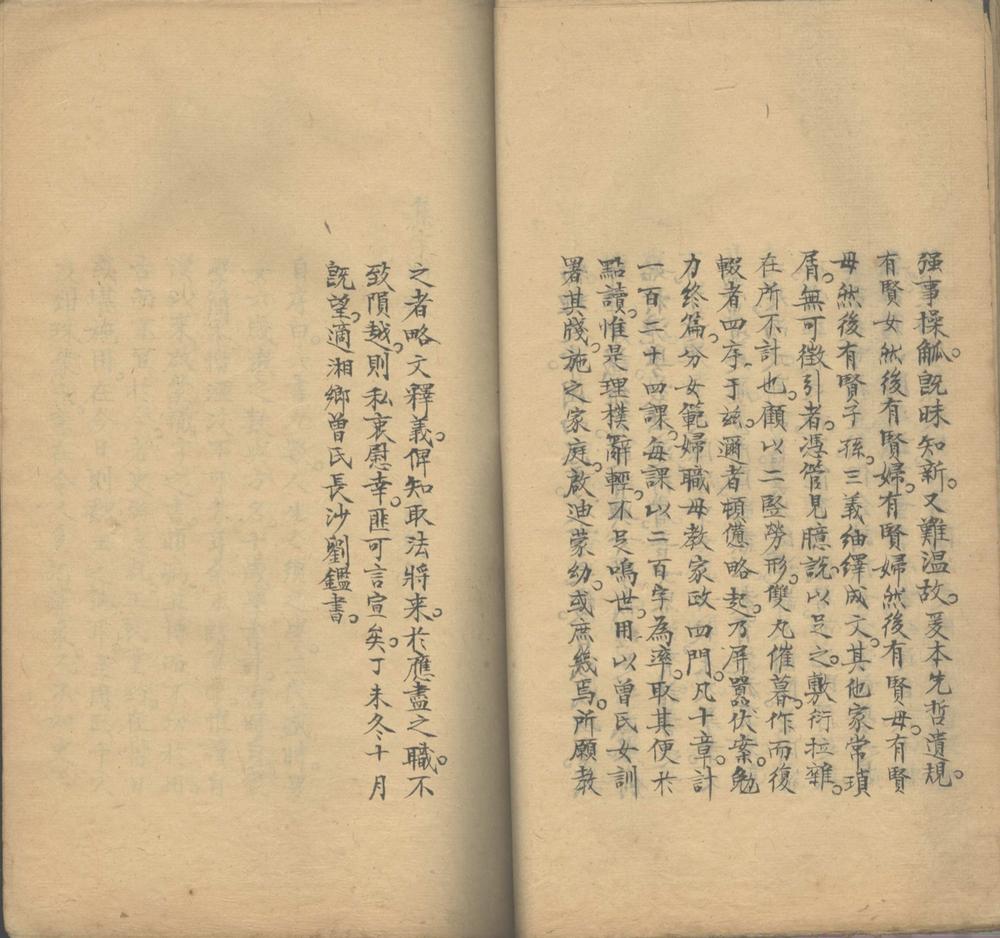 强事操觚。旣昧知新。又難温故。爰本先哲遺規。
有賢女然後有賢婦。有賢婦然後有賢母。有賢
母然後有賢子孫。三義紬繹成文。其他家常瑣
屑。無可徵引者。憑管見臆說以足之。敷衍拉雜。
在所不計也。顧以二豎勞形。雙丸催暮。作而復
輟者四序于兹。邇者頓憊略起。乃屏囂伏案。勉
力終篇。分女範婦職母教家政四門。凡十章。計
一百二十四課。每課以二百字為率。取其便於
點讀。惟是理樸辭輕。不足鳴世。用以曾氏女訓
署其牋。施之家庭。啟迪蒙幼。或庶幾焉。所願教
之者略文釋義。俾知取法將来。於應盡之職。不
致隕越。則私衷慰幸。匪可言宣矣。丁未冬十月
旣望。適湘鄉曾氏長沙劉鑑書。